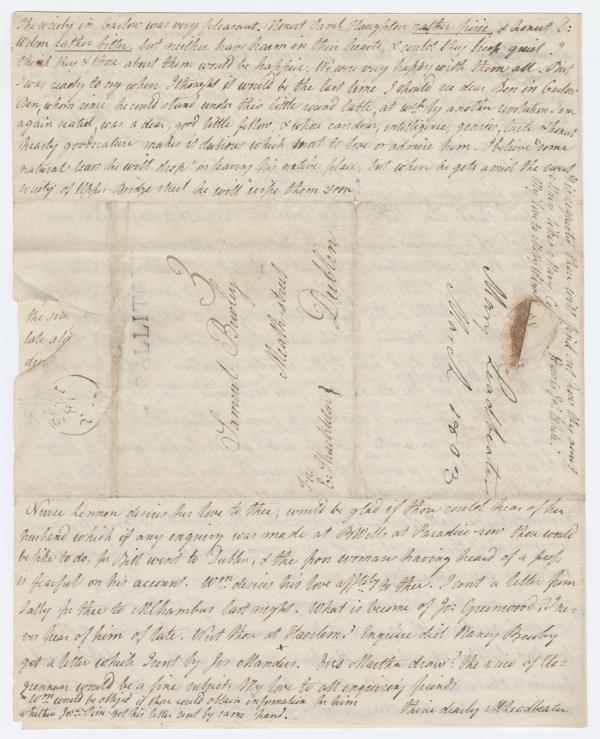 The society in Carlow was very pleasant. Honest Saml Haughton rather fierce, & honest D:
Wilson rather bitter, but neither have harm in their hearts, & could they keep quiet I
think they & those about them would be happier. We were very happy with them all. But
I was ready to cry when I thought it would be the last time I should see dear Ben in Carlow
Ben, whom since he could stand under this little round table, at wch by another revolution I am
again seated, was a dear, good little fellow, & whose candour, intelligence, genius, taste & honest
hearty goodnature makes it dubious which most to love or admire him. I believe "some
natural tears he will drop" on leaving his native place, but when he gets amid the sweet
society of Upper Bridge street he will "wipe them soon".
the
late
Samuel Bewley
Meath street
Dublin
For
E: Shackleton
Mary Leadbeater
March 1803
BALLITO
Nurse Lennon desires her love to thee, would be glad if thou could hear of her
husband which if any enquiry was made at B Wills at Paradise-row thou would
be like to do. for Bill went to Dublin, & the poor woman having heard of a press
is fearful on his account. Wm. desires his love affctly to thee. I sent a letter from
Sally for thee to M Chambers last night. What is become of Jos: Greenwood? I ne-
ver hear of him of late. Wert thou at Haarlem? Enquire did Nancy Bewley
get a letter which I sent by Jos Manders. Does Martha draw? The ruins of Clo-
grennan would be a fine subject. My love to all enquiring friends
thine dearly M Leadbeater
Wm. would be obliged if thou could obtain information for him
whether Jos. Pim got his letter sent by same hand.